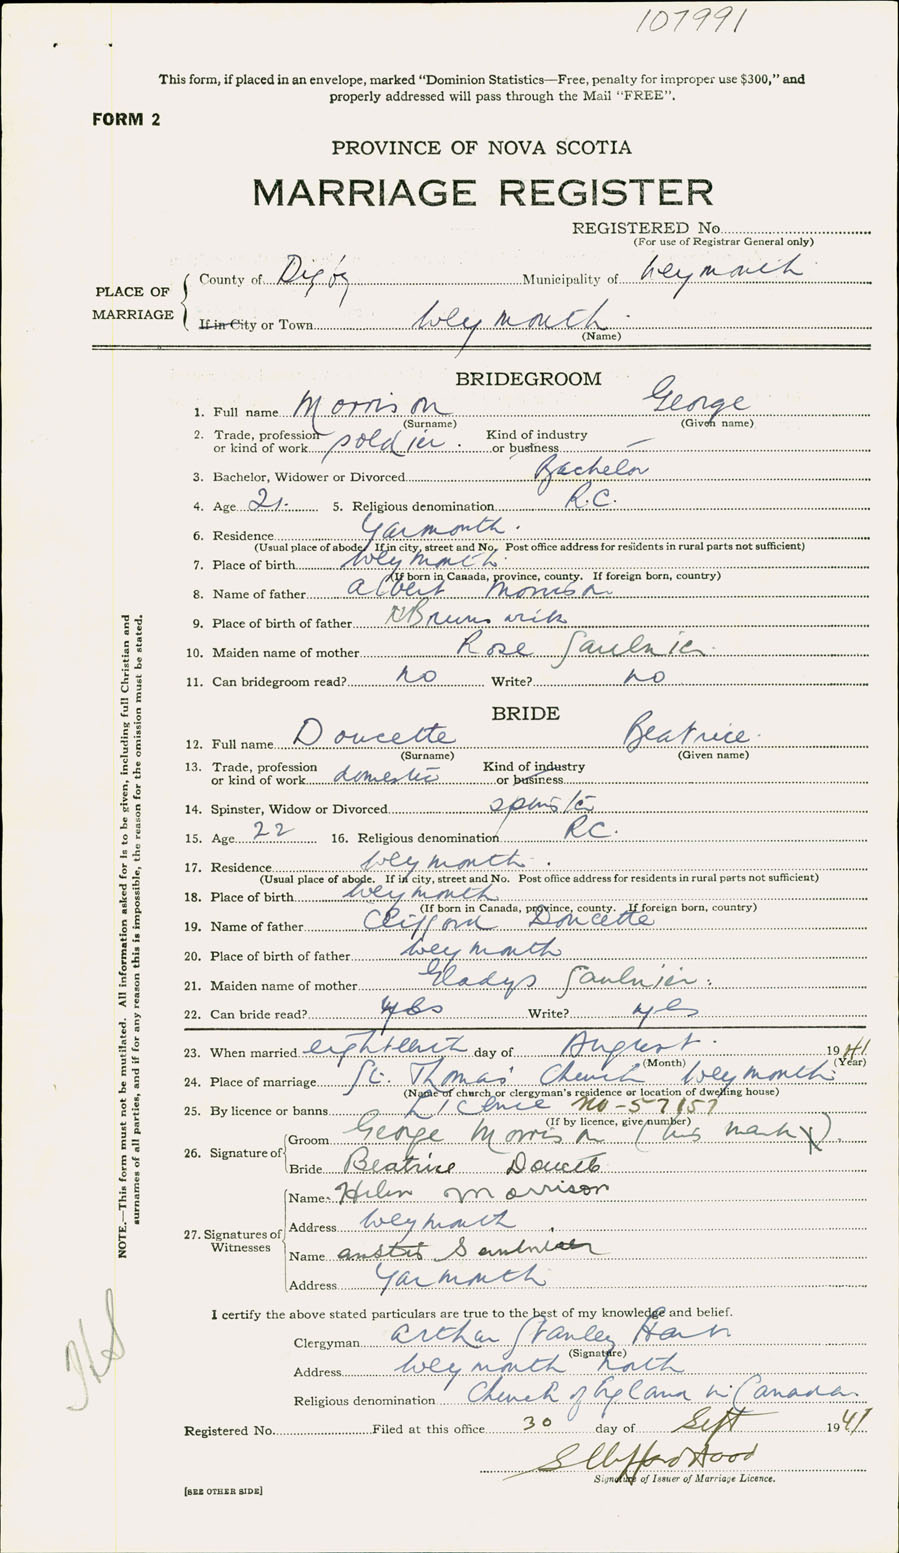 107991
This form, if placed in an envelope, marked "Dominion Statistics—Free, penalty for improper use $300," and
properly addressed will pass through the Mail "FREE".
FORM 2
PROVINCE OF NOVA SCOTIA
MARRIAGE REGISTER
REGISTERED No.
(For use of Registrar General only)
PLACE OF MARRIAGE
County of Digby Municipality of Weymouth
If in City or Town Weymouth
(Name)
BRIDEGROOM
1. Full name Morrison George
(Surname) (Given name)
2. Trade, profession or kind of work soldier. Kind of industry or business —
3. Bachelor, Widower or Divorced Bachelor
4. Age 21. 5. Religious denomination R.C.
6. Residence Yarmouth.
(Usual place of abode. If in city, street and No. Post office address for residents in rural parts not sufficient)
7. Place of birth Weymouth.
(If born in Canada, province, county. If foreign born, country)
8. Name of father Albert Morrison
9. Place of birth of father N Brunswick
10. Maiden name of mother Rose Saulnier.
11. Can bridegroom read? no Write? no
BRIDE
12. Full name Doucette Beatrice.
(Surname) (Given name)
13. Trade, profession or kind of work domestic Kind of industry or business
14. Spinster, Widow or Divorced spinster
15. Age 22 16. Religious denomination R.C.
17. Residence Weymouth.
(Usual place of abode. If in city, street and No. Post office address for residents in rural parts not sufficient)
18. Place of birth Weymouth
(If born in Canada, province, county. If foreign born, country)
19. Name of father Clifford Doucette
20. Place of birth of father Weymouth
21. Maiden name of mother Gladys Saulnier.
22. Can bride read? yes Write? yes
23. When married eighteenth day of August. 1941
(Month) (Year)
24. Place of marriage St. Thomas' Church Weymouth.
(Name of church or clergyman's residence or location of dwelling house)
25. By licence or banns Licence no-57157
(If by licence, give number)
26. Signature of
Groom George Morrison (his mark X).
Bride Beatrice Doucette
27. Signatures of Witnesses
Name Helen Morrison
Address Weymouth
Name
Address Yarmouth
I certify the above stated particulars are true to the best of my knowledge and belief.
Clergyman Arthur Stanley
(Signature)
Address Weymouth North
Religious denomination Church of England in Canada.
Registered No. Filed at this office 30 day of Sept 1941
Signature of Issuer of Marriage Licence.
[SEE OTHER SIDE]
NOTE.—This form must not be mutilated. All information asked for is to be given, including full Christian and
surnames of all parties, and if for any reason this is impossible, the reason for the omission must be stated.